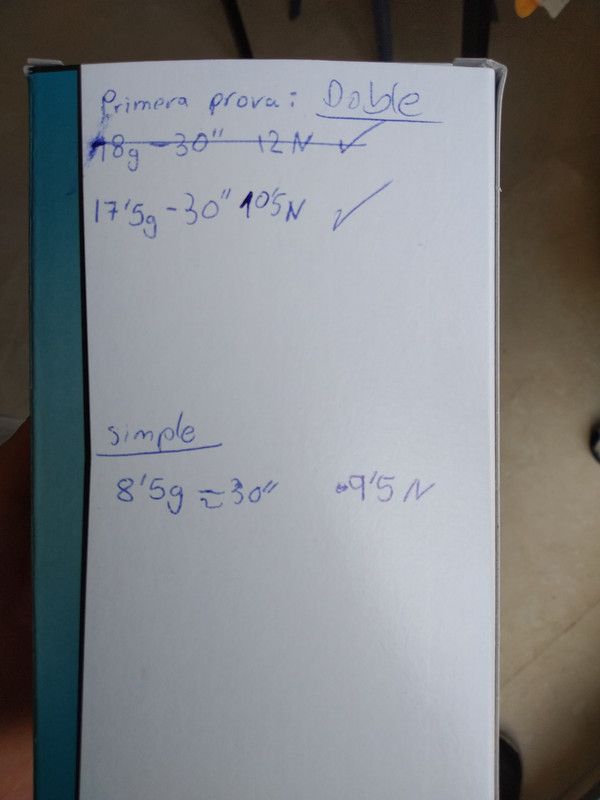 Primera prova: Doble
18g - 30" 12 N ✓
17'5g - 30" 10'5N ✓
simple
8'5g ≈ 30" 9'5 N